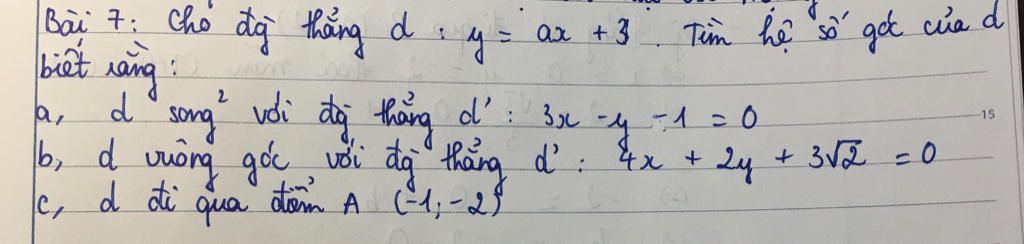 Bài 7: Cho đg̀ thẳng d : y = ax + 3. Tìm hệ số góc của d
biết rằng :
a, d song² với đg̀ thẳng d' : 3x - y - 1 = 0
15
b, d vuông góc với đg̀ thẳng d' : 4x + 2y + 3√2 = 0
c, d đi qua điểm A (-1; -2)